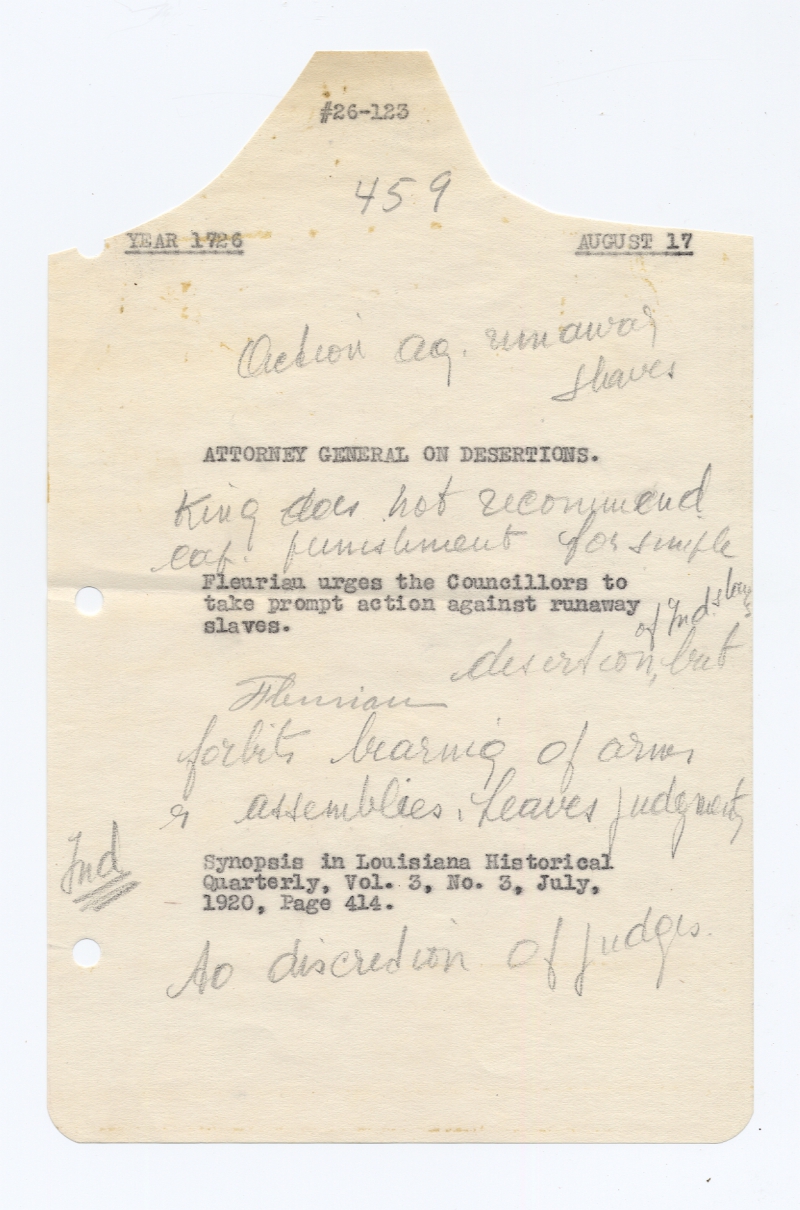 #26-123
459
YEAR 1726 AUGUST 17
Action ag. runaway
slaves
ATTORNEY GENERAL ON DESERTIONS.
King does not recommend
cap. punishment for simple
Fleuriau urges the Councillors to
take prompt action against runaway
slaves.
of Ind. slaves
desertion, but
Fleuriau
forbits bearing of arms
& assemblies, leaves judgments
Ind
Synopsis in Louisiana Historical
Quarterly, Vol. 3, No. 3, July,
1920, Page 414.
to discretion of judges.